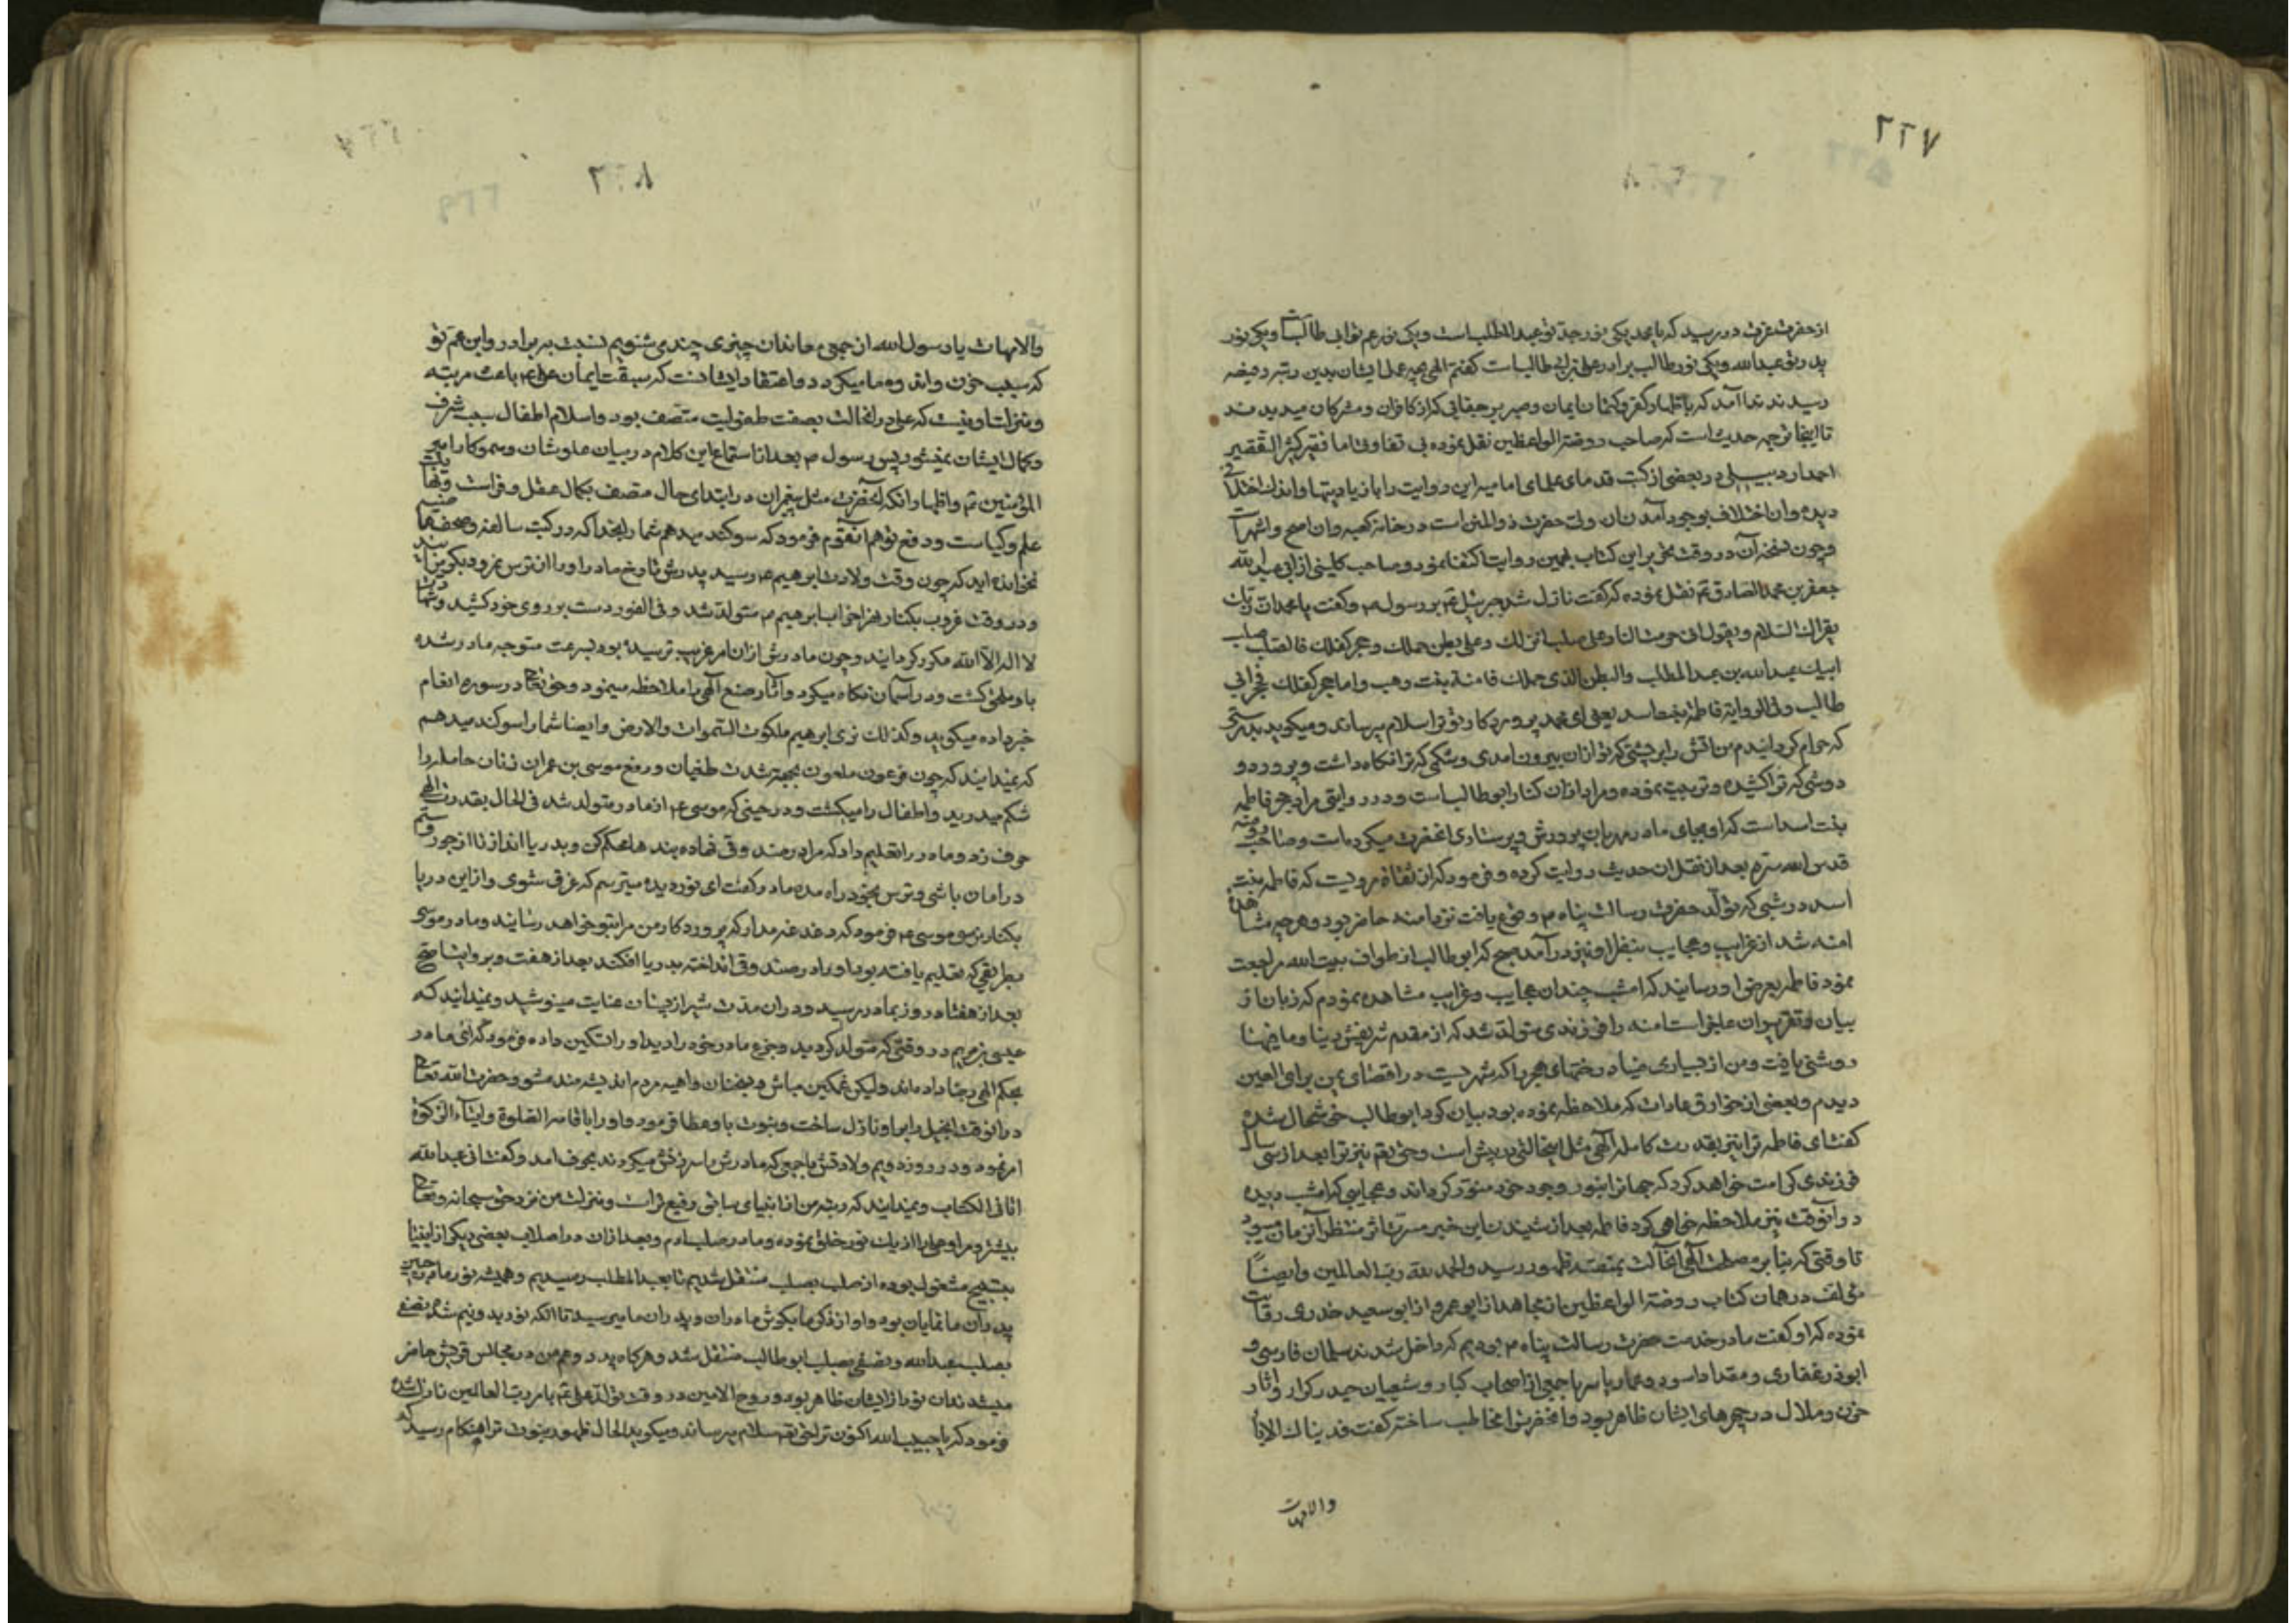 ٢٢٧
از حضرت عزت در رسید که یا محمد یکی نور جد تو عبد المطلب است و یکی نور عم تو ابی طالب است و یکی نور
پدر تو عبد الله و یکی نور طالب برادر علی بن ابی طالب است گفتم الهی بچه عمل ایشان بدین رتبه رفیعه
رسیدند ندا آمد که باظهار کفر و کتمان ایمان و صبر بر جفایی که از کافران و مشرکان میدیدند
تا اینجا ترجمه حدیث است که صاحب روضة الواعظین نقل نموده بی تفاوت اما فقیر کثیر التقصیر
احمد اردبیلی در بعضی از کتب قدمای علمای امامیه این روایت را با زیادیتها و اندک اختلافی
دیده و ان اختلاف بوجود آمدن ان ولی حضرت ذو المنن است در خانه کعبه و ان اصح و اشهر است
و چون نسخه آن در وقت تحریر این کتاب بهمین روایت اکتفا نمود و صاحب کلینی از ابی عبد الله
جعفر بن محمد الصادق ع نقل نموده که گفت نازل شد جبرئیل ع بر رسول ص و گفت یا محمد ان ربک
یقرئک السلام و یقول انی حرمت النار علی صلب انزلک و علی بطن حملک و حجر کفلک فالصلب صلب
ابیک عبد الله بن عبد المطلب والبطن الذی حملک فامنة بنت وهب و اما حجر کفلک فحجر ابی
طالب و فی الروایة فاطمة بنت اسد یعنی ای محمد پروردکار تو ترا سلام میرساند و میکوید بدرستی
که حرام کردانیدم من اتش را بر پشتی که تو از ان بیرون امدی و شکمی که ترا نکاه داشت و پرورد و
دوشی که ترا کشیده و تربیت نموده و مراد از ان کنار ابو طالب است و در روایتی مراد حجر فاطمه
بنت اسد است که او بجای مادر مهربان پرورش و پرستاری انحضرت میکرده است و صاحب روضه
قدس الله سره بعد از نقل ان حدیث روایت کرده و فرمود که از ثقاة مرویست که فاطمه بنت
اسد در شبی که تولد حضرت رسالت پناه ص وقوع یافت نزد امنه حاضر بود و هر چه مشاهده
امنه شد از غرایب و عجایب بنظر او نیز در آمد صبح که ابو طالب از طواف بیت الله مراجعت
نمود فاطمه بعرض او رسانید که امشب چندان عجایب و غرایب مشاهده نمودم که زبان از
بیان و تقریر ان عاجز است امنه را فرزندی متولد شد که از مقدم شریفش دنیا و مافیها
روشنی یافت و من از بسیاری ضیا درختهای هجر را که شهریست در اقصای یمن برای العین
دیدم و بعضی از خوارق عادات که ملاحظه نموده بود بیان کرد ابو طالب خوشحال شده
گفت ای فاطمه ترا نیز بقدرت کامله الهی مثل اینحالتی در پیش است و حق تع نیز ترا بعد از سی سال
فرزندی کرامت خواهد کرد که جهانرا بنور وجود خود منور کرداند و عجایبی که امشب دیده
در آنوقت نیز ملاحظه خواهی کرد فاطمه بعد از شنیدن این خبر مسرت اثر منتظر آنزمان میبود
تا وقتی که بنا بر مصلحت الهی انحالت بمنصه ظهور رسید والحمد لله رب العالمین وایضاً
مؤلف در همان کتاب روضة الواعظین از مجاهد از ابو عمرو از ابو سعید خدری روایت
نموده که او گفت ما در خدمت حضرت رسالت پناه ص بودیم که داخل شدند سلمان فارسی و
ابوذر غفاری و مقداد اسود و عمار یاسر با جمعی از اصحاب کبار و شیعیان حیدر کرار و اثار
حزن و ملال در چهرهای ایشان ظاهر بود و انحضرت را مخاطب ساخته گفت فدیناک الاباء
والامهات
٢٢٨
والامهات یا رسول الله از جمعی معاندان چیزی چندی شنویم نسبت ببرادر و ابن عم تو
که سبب حزن و اندوه ما میکردد و اعتقاد ایشانست که سبقت ایمان علی ع باعث مرتبه
و منزلت او نیست که علی در انحالت بصفت طفولیت متصف بود و اسلام اطفال سبب شرف
و کمال ایشان نمیشود پس رسول ص بعد از استماع این کلام در بیان علو شان و سمو مکان امیر
المؤمنین ع و اظهار انکه آنحضرت مثل پیغمبران در ابتدای حال متصف بکمال عقل و فراست
علم و کیاست و دفع توهم انقوم فرمود که سوکند میدهم شما را بخدا که در کتب سالفه و صحف
نخوانده اید که چون وقت ولادت ابرهیم ع رسید پدرش تارخ مادر او را از ترس نمرود
و در وقت غروب بکنار نهر ابراهیم ع متولد شد و فی الفور دست بر روی خود کشید و
لا اله الا الله مکرر کردانید و چون مادرش از ان امر غریب ترسیده بود بسرعت متوجه مادر شده
باو ملتفت کشت و در آسمان نکاه میکرد و آثار صنع الهی را ملاحظه مینمود و حق تعالی در سوره انعام
خبر داده میکوید و کذلک نری ابرهیم ملکوت السموات والارض و ایضا شما را سوکند میدهم
که نمیدانید که چون فرعون ملعون بجهة شدت طغیان و رفع موسی بن عمران زنان حامله را
شکم میدرید و اطفال را میکشت و در حینی که موسی ع از مادر متولد شد فی الحال بقدرت الهی
حرف زد و مادر را تعلیم داد که مرا در صندوقی نهاده بند ها محکم کن و بدریا انداز تا از جور و ستم
در امان باشی و ترس بخود راه مده مادر گفت ای نور دیده میترسم که غرق شوی و از این دریا
بکنار نرسی موسی ع فرمود که دغدغه مدار که پروردکار من مرا بتو خواهد رسانید و مادر موسی
بطریقی که تعلیم یافته بود او را در صندوقی انداخته بدریا افکند بعد از هفت و بروایت اصح
بعد از هفتاد روز بمادر رسید و در ان مدت شیر از پستان عنایت مینوشید و نمیدانید که
عیسی بن مریم در وقتی که متولد کردید و جزع مادر خود را دید او را تسکین داده فرمود که ای مادر
بحکم الهی رضا داده ماند و لیکن غمکین مباش و بسخنان واهیه مردم اندیشه مند مشو و حضرت الله تعالی
در انوقت انجیل را بر او نازل ساخت و نبوت باو عطا فرمود و او را باقامة الصلوة و ایتاء الزکوة
امر نمود و در روز دویم ولادتش با جمعی که مادرش را سرزنش میکردند بحرف امد و گفت انی عبد الله
اتانی الکتاب و نمیدانید که رتبه من از انبیای سابق رفیع تر است و منزلت من نزد حق سبحانه و تعالی
بیشتر و مرا و علی را از یک نور خلق نموده و ما در صلب ادم و بعد از ان در اصلاب بعضی دیکر از انبیا
بتسبیح مشغول بوده از صلب بصلب منتقل شدیم تا بعبد المطلب رسیدیم و همیشه نور ما در جبین
پدران ما نمایان بود و اواز ذکر ما بکوش مادران و پدران ما میرسید تا انکه نور بدو نیم شده نصفی
بصلب عبد الله و نصفی بصلب ابو طالب منتقل شد و هرکاه پدر و عم من در مجالس قریش حاضر
میشدند ان نور از ایشان ظاهر بود و روح الامین در وقت تولد علی ع بامر رب العالمین نازل شده
فرمود که یا حبیب الله اکنون ترا حق تع سلام میرساند و میکوید الحال ظهور نبوت ترا هنکام رسید که